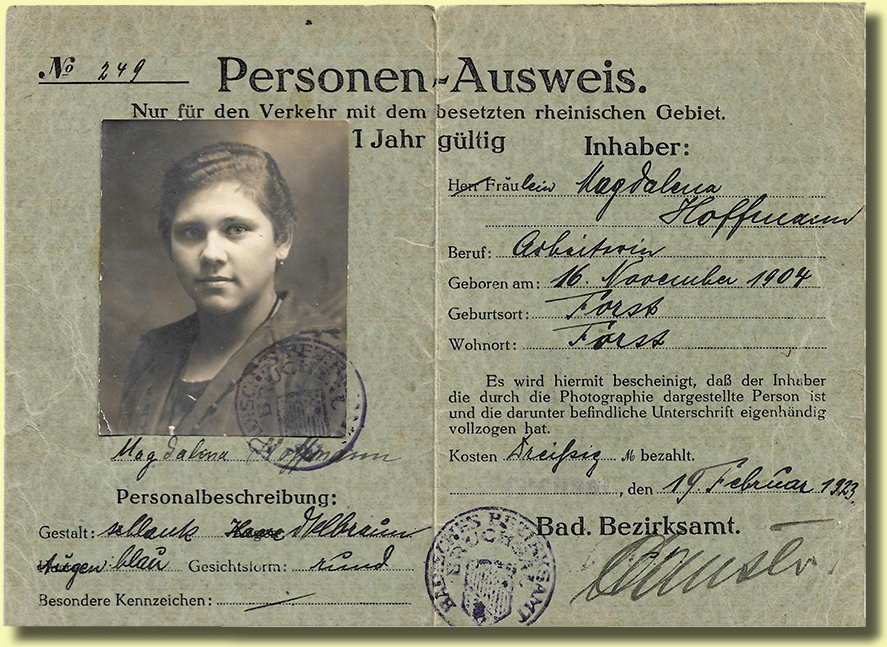 No 249
Personen-Ausweis.
Nur für den Verkehr mit dem besetzten rheinischen Gebiet.
1 Jahr gültig
Magdalena Hoffmann
Personalbeschreibung:
Gestalt: schlank Haare dklbraun
Augen blau Gesichtsform: rund
Besondere Kennzeichen:
Inhaber:
Herr Fräulein Magdalena
Hoffmann
Beruf: Arbeiterin
Geboren am: 16. November 1904
Geburtsort: Forst
Wohnort: Forst
Es wird hiermit bescheinigt, daß der Inhaber
die durch die Photographie dargestellte Person ist
und die darunter befindliche Unterschrift eigenhändig
vollzogen hat.
Kosten Dreißig M bezahlt.
, den 19. Februar 1923.
Bad. Bezirksamt.
BADISCHES BEZIRKSAMT
BRUCHSAL